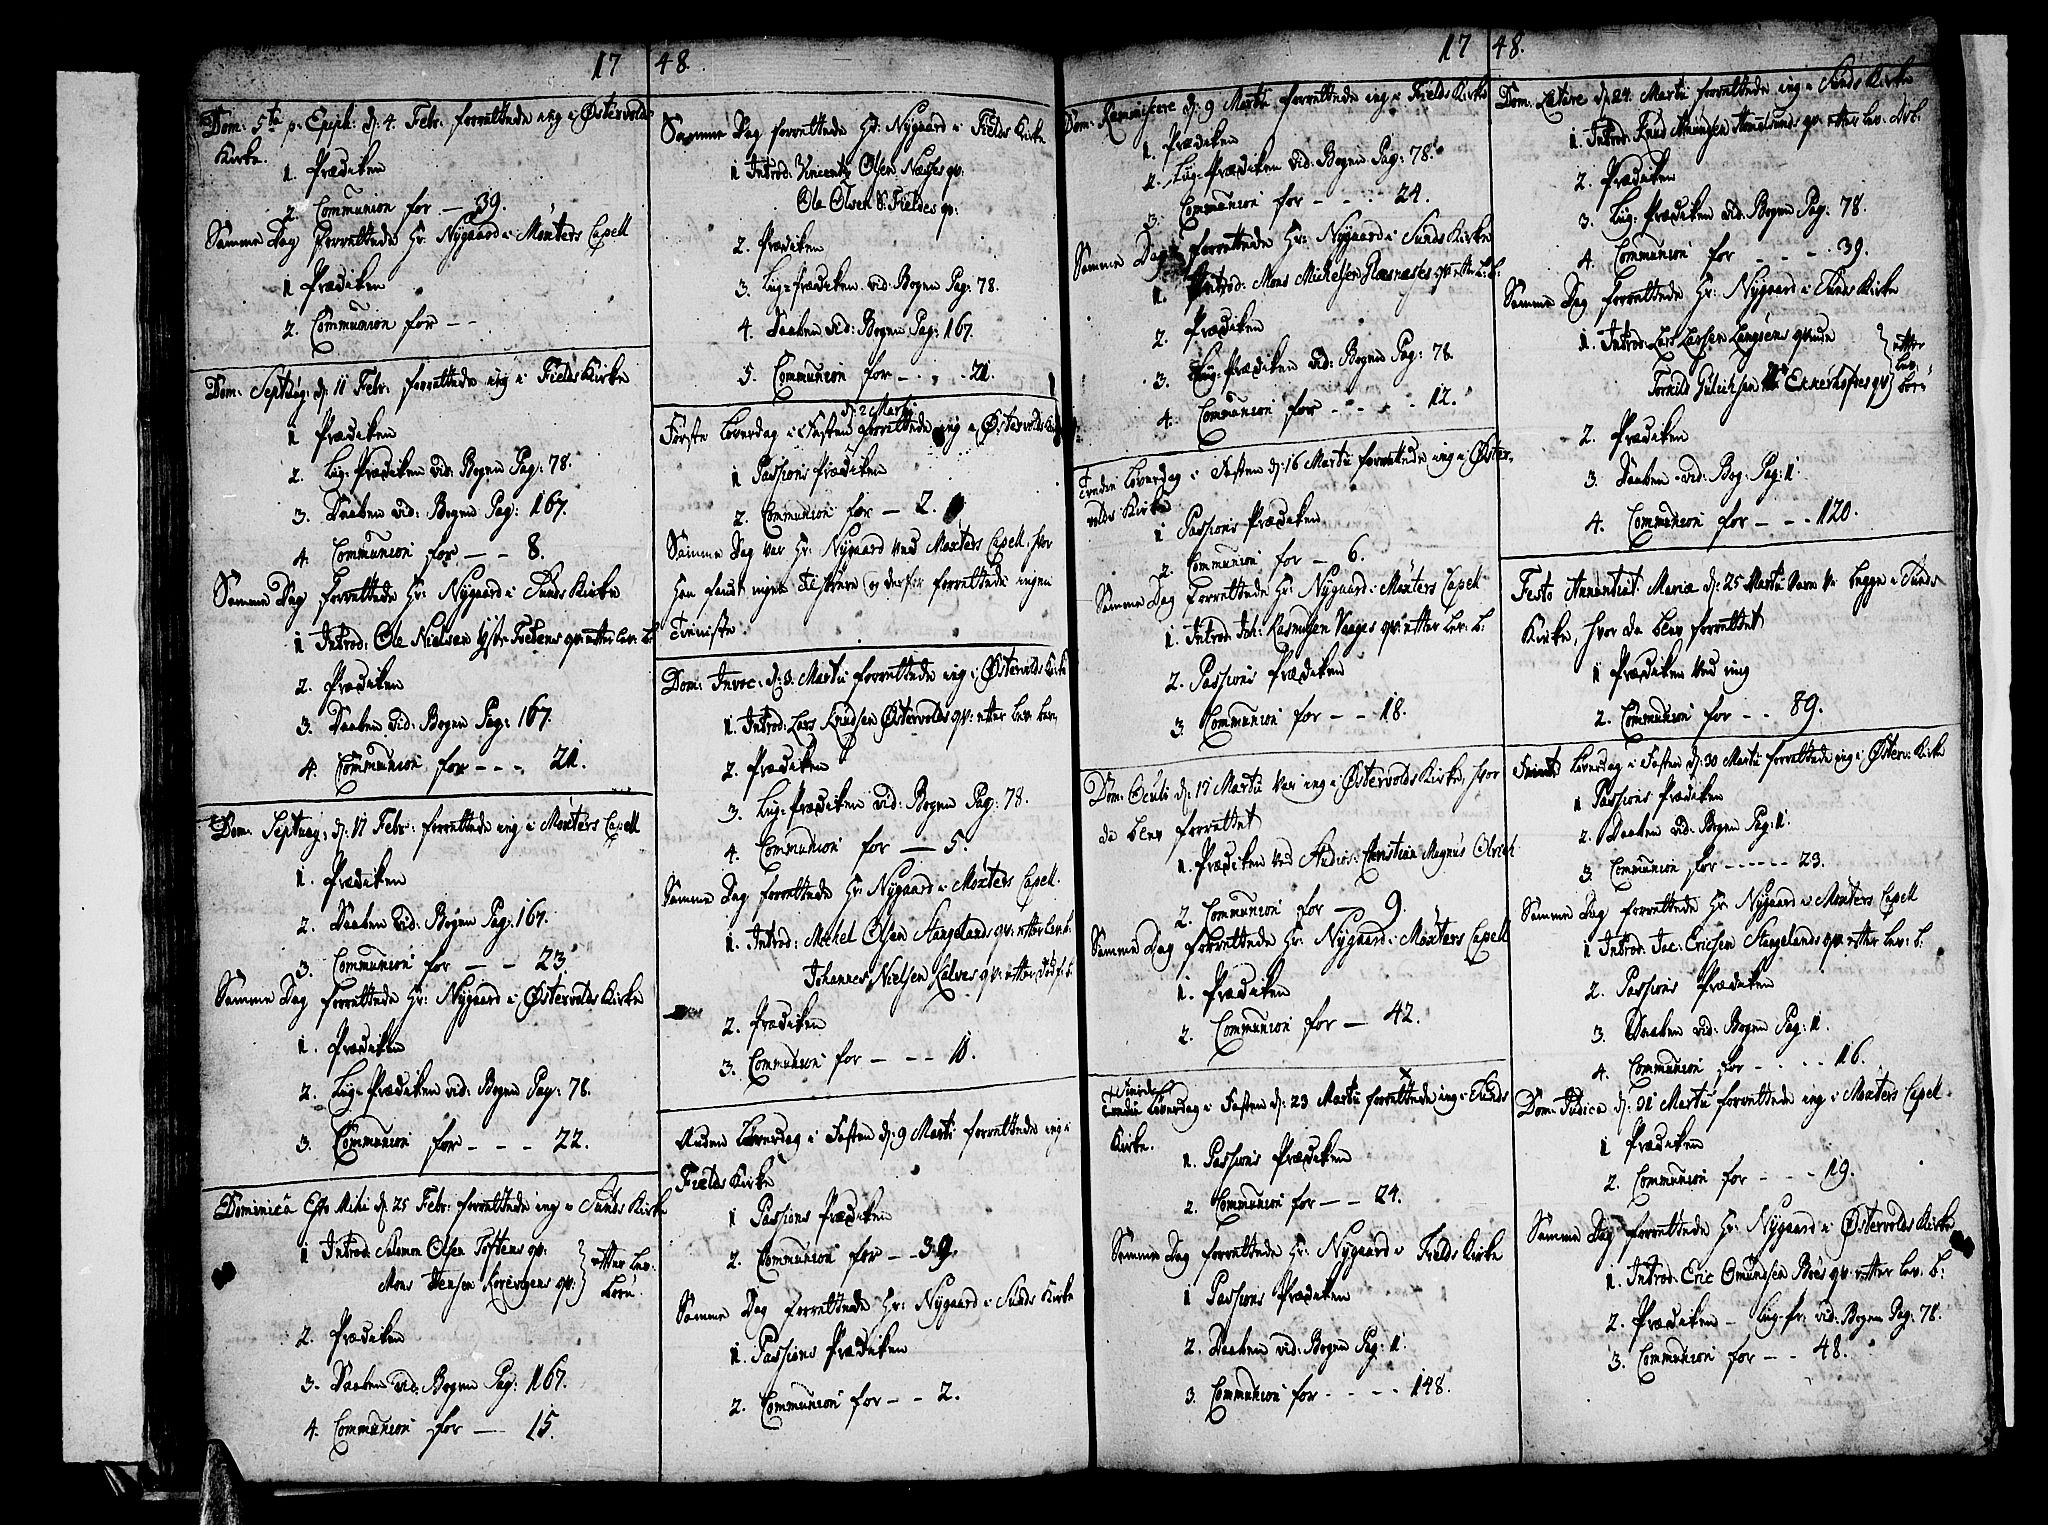 17 48.
Dom: 5ta p. Epiph: d. 4. Febr. forrettede ieg i Østervolds
Kirke.
1. Prædiken
2. Communion for — 39.
Samme Dag forrettede Hr: Nygaard i Møxters Capell
1 Prædiken
2. Communion for — —
Dom: Septuag: d. 11 Febr. forrettede ieg i Fields Kirke
1 Prædiken
2. Liig-Prædiken vid: Bogen Pag: 78.
3. Daaben vid: Bogen Pag: 167.
4. Communion for — — 8.
Samme Dag forrettede Hr: Nygaard i Sunds Kirke
1 Introd: Ole Nielsen qv: efter lev: b.
2. Prædiken
3. Daaben vid: Bogen Pag: 167.
4. Communion for - - - 21.
Dom. Septuag: d. 11 Febr: forrettede ieg i Møxters Capell
1. Prædiken
2. Daaben vid: Bogen Pag: 167.
3. Communion for — — 23
Samme Dag forrettede Hr: Nygaard i Østervolds Kirke
1. Prædiken
2. Liig-Prædiken vid: Bogen Pag: 78.
3. Communion for - - - 22.
Dominica Esto Mihi d. 25 Febr: forrettede ieg i Sunds Kirke
1 Introd: Salomon Olsen Toftens qv:
Mons Jensen qv: } efter lev: Børn.
2. Prædiken
3. Daaben vid: Bogen Pag: 167.
4. Communion for — 15.
Samme Dag forrettede Hr: Nygaard i Fields Kirke
1 Introd: Vincentz Olsen Næsses qv:
Ole Olsen S: Fieldes qv:
2. Prædiken
3. Liig-prædiken vid: Bogen Pag: 78.
4. Daaben vid: Bogen Pag: 167.
5. Communion for - - - 21.
Første Løverdag i Fasten d. 2 Martii forrettede ieg i Østervolds Kirke
1 Passions Prædiken
2. Communion for — 2.
Samme Dag var Hr: Nygaard ved Møxters Capell, hvor
han fandt ingen Tilhørere og derfor forrettede ingen
Tieniste.
Dom: Invoc: d. 3. Martii forrettede ieg i Østervolds Kirke
1. Introd: Lars Knudsen Østervolds qv: efter lev: børn
2. Prædiken
3. Liig-Prædiken vid: Bogen Pag: 78.
4. Communion for — 5.
Samme Dag forrettede Hr: Nygaard i Møxters Capell.
1. Introd: Michel Olsen Stangelands qv: efter lev: b.
Johannes Nielsen Kalves qv: efter Dødf: b.
2. Prædiken
3. Communion for — - - 11.
Anden Løverdag i Fasten d. 9 Martii forrettede ieg i
Fields Kirke
1 Passions Prædiken
2. Communion for — 39.
Samme Dag forrettede Hr: Nygaard i Sunds Kirke
1. Passions Prædiken
2. Communion for - - 2.
17 48.
Dom: Reminiscere d. 9 Martii forrettede ieg i Fields Kirke
1. Prædiken
2. Liig-Prædiken vid: Bogen Pag: 78.
3. Communion for - - - - 24.
Samme Dag forrettede Hr: Nygaard i Sunds Kirke
1. Introd: Mons Michelsen qv: efter l: b:
2. Prædiken
3. Liig-Prædiken vid: Bogen Pag: 78.
4. Communion for - - - - 12.
Tredie Løverdag i Fasten d. 16 Martii forrettede ieg i Øster-
volds Kirke
1 Passions Prædiken
2. Communion for — 6.
Samme Dag forrettede Hr: Nygaard i Møxters Capell
1. Introd: Joh: Rasmusen Vaages qv: efter lev: b.
2. Passions Prædiken
3 Communion for — - 18.
Dom: Oculi d. 17 Martii var ieg i Østervolds Kirke, hvor
da blev forrettet
1. Prædiken ved Studios: Christian Magnus Olrich
2. Communion for — 9.
Samme Dag forrettede Hr: Nygaard i Møxters Capell
1. Prædiken
2. Communion for — 42.
Fierde
Tredie Løverdag i Fasten d. 23 Martii forrettede ieg i Sunds
Kirke.
1. Passions Prædiken
2. Communion for — - 24.
Samme Dag forrettede Hr: Nygaard i Fields Kirke
1 Passions Prædiken
2. Daaben vid: Bogen Pag: 11.
3. Communion for - - - - 148.
Dom: Lætare d. 24. Martii forrettede ieg i Sunds Kirke
1. Introd: Knud Amundsen qv: efter lev: b.
2. Prædiken
3. Liig-Prædiken vid: Bogen Pag: 78.
4. Communion for - - - - 39.
Samme Dag forrettede Hr: Nygaard i Sunds Kirke
1. Introd: Lars Larsen qvinde
Torkild qv: } efter lev: børn
2. Prædiken
3. Daaben vid: Bog: Pag: 11
4. Communion for - - - 120.
Festo Annuntiat: Mariæ d. 25 Martii vare vi begge i Sunds
Kirke, hvor da blev forrettet
1 Prædiken ved mig
2. Communion for - - 89.
Løverdag i Fasten d. 30 Martii forrettede ieg i Østerv: Kirke
1 Passions Prædiken
2. Daaben vid: Bogen Pag: 11.
3. Communion for - - - - - 23.
Samme Dag forrettede Hr: Nygaard i Møxters Capell
1 Introd: Jac: Ericsen Stangelands qv: efter lev: b.
2. Passions Prædiken
3. Daaben vid: Bogen Pag: 11.
4. Communion for - - - - 16.
Dom: Judica d. 31 Martii forrettede ieg i Møxters Capel
1 Prædiken
2. Communion for - - - 19.
Samme Dag forrettede Hr: Nygaard i Østervolds Kirke
1. Introd: Eric Omundsen Boes qv: efter lev: b:
2. Prædiken - Liig-pr: vid: Bogen Pag: 78.
3. Communion for - - 48.